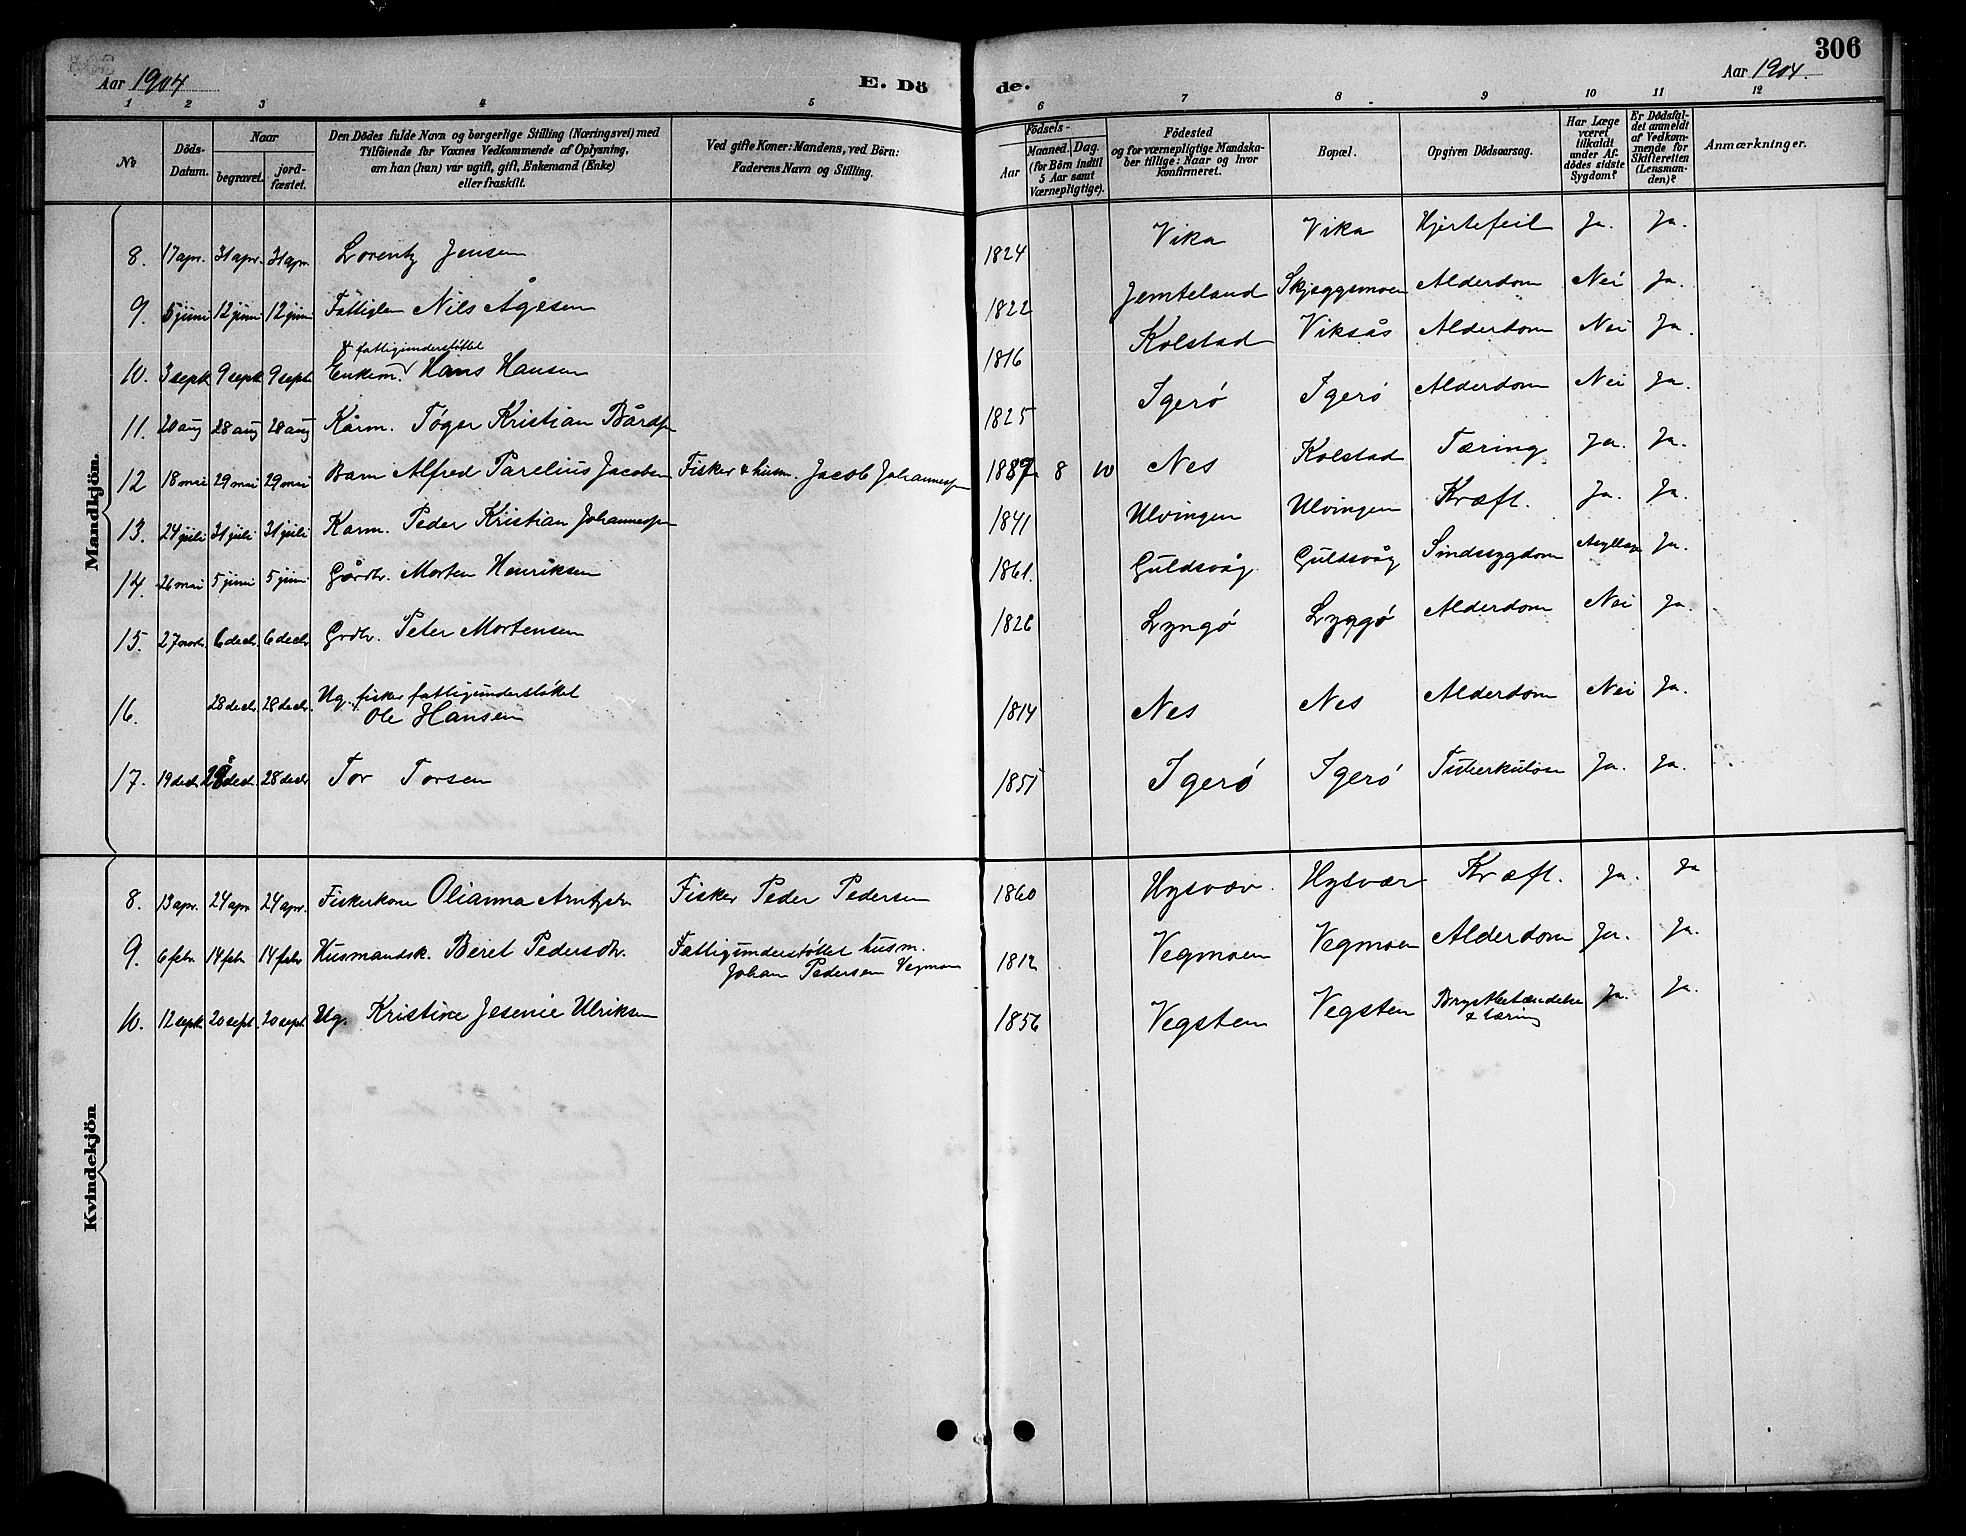 306
Aar 1904
E. Dö
de.
Aar 1904.
1 2 3 4 5 6 7 8 9 10 11 12
№
Döds-Datum.
Naar
begravet.
jord-fæstet.
Den Dödes fulde Navn og borgerlige Stilling (Næringsvei) med
Tilföiende for Voxnes Vedkommende af Oplysning,
om han (hun) var ugift, gift, Enkemand (Enke)
eller fraskilt.
Ved gifte Koner: Mandens, ved Börn:
Faderens Navn og Stilling.
Födsels-
Aar
Maaned. Dag.
(for Börn indtil
5 Aar samt
Værnepligtige).
Födested
og for værnepligtige Mandska-
ber tillige: Naar og hvor
konfirmeret.
Bopæl.
Opgiven Dödsaarsag.
Har Læge
været
tilkaldt
under Af-
dödes sidste
Sygdom?
Er Dödsfal-
det anmeldt
af Vedkom-
mende for
Skifteretten
(Lensman-
den)?
Anmærkninger.
Mandkjön.
8. 17 apr. 31 apr. 31 apr. Lorentz Jensen 1824 Vika Vika Hjertefeil Ja. Ja.
9. 5 juni 12 juni 12 juni Fattiglem Nils Ågesen 1822 Jemteland Skjeggsmoen Alderdom Nei Ja.
& fattigunderstøttet
10. 3 sept 9 sept 9 sept. Enkem. Hans Hansen 1816 Kolstad Viksås Alderdom Nei Ja.
11. 20 aug 28 aug 28 aug Kårm. Tøger Kristian Bårdsen 1825 Igerø Igerø Alderdom Nei Ja.
12 18 mai 29 mai 29 mai Barn Alfred Parelius Jacobsen Fisker & husm. Jacob Johannessen 8 10 Nes Kolstad Tæring Ja. Ja.
13. 24 juli 31 juli 31 juli Karm. Peder Kristian Johannessen 1841 Ulvingen Ulvingen Kræft. Ja. Ja.
14. 26 mai 5 juni 5 juni Gårdbr. Morten Henriksen 1861. Guldsvåg Guldsvåg Sindssygdom Ja.
15. 27 novbr. 6 decbr. 6 decbr. Grdbr. Peter Mortensen 1826 Lyngø Lyngø Alderdom Nei Ja.
16. 28 decbr. 28 decbr. Ug. fisker fattigunderstøttet
Ole Hansen 1814 Nes Nes Alderdom Nei Ja.
17. 19 decbr. 28 decbr. 28 decbr Tor Torsen 1851 Igerø Igerø Tuberkulose Ja. Ja.
Kvindekjön
8. 13 apr. 24 apr 24 apr. Fiskerkone Olianna Arntzdtr. Fisker Peder Pedersen 1860 Hysvær Hysvær Kræft. Ja. Ja
9. 6 febr. 14 febr 14 febr Husmandsk. Beret Pedersdtr. Fattigunderstøttet husm.
Johan Pedersen Vegmoen 1812 Vegmoen Vegmoen Alderdom Ja. Ja.
10. 12 sept. 20 sept. 20 sept. Ug. Kristine Jesenie Ulriksen 1856 Vegsten Vegsten Brystbetændelse
& tæring Ja. Ja.